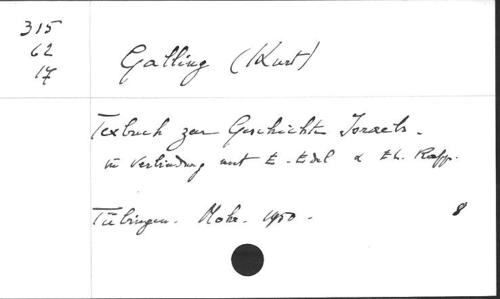 315
62
17
Galling (Kurt)
Texbuch zur Geschichte Israels.
in Verbindung mit E. Edel & Eh. Rapp.
Tübingen. Mohr. 1950.
8